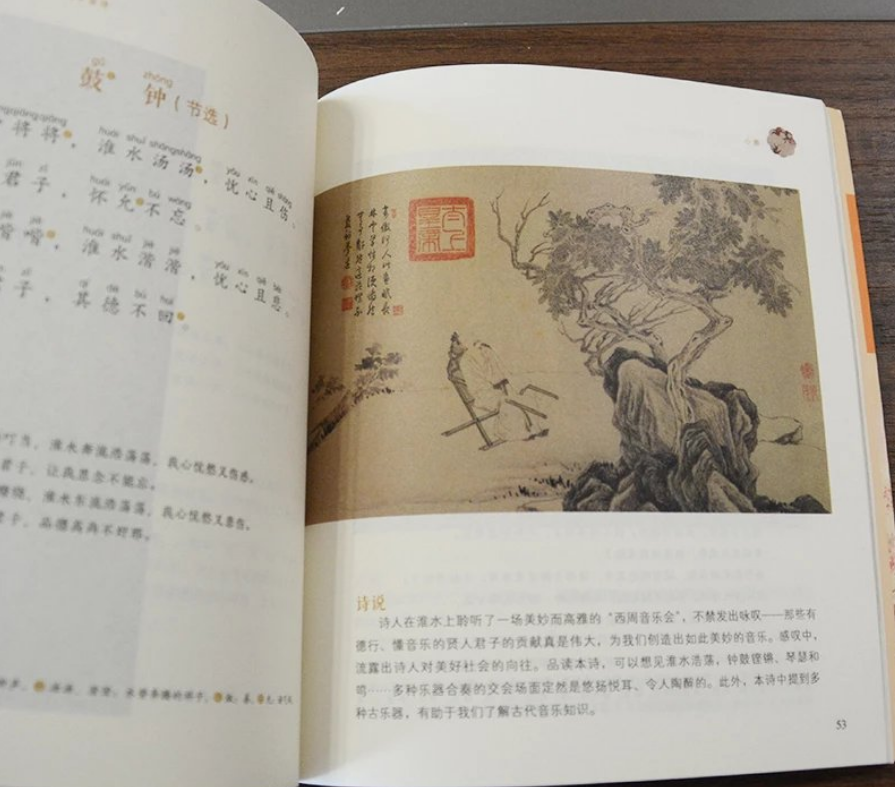 gǔ zhōng
鼓 钟（节选）
qiāngqiāng huái shuǐ shāngshāng yōu xīn qiě shāng
将将，淮水汤汤，忧心且伤。
jūn zǐ huái yǔn bù wàng
君子，怀允不忘。
jiē jiē huái shuǐ jiē jiē yōu xīn qiě bēi
喈喈，淮水湝湝，忧心且悲。
zǐ qí dé bù huí
子，其德不回。
叮当，淮水奔流浩荡荡，我心忧愁又伤感。
君子，让我思念不能忘。
缭绕，淮水奔流浩荡荡，我心忧愁又悲伤。
君子，品德高尚不奸邪。
诗说
诗人在淮水上聆听了一场美妙而高雅的“西周音乐会”，不禁发出咏叹——那些有
德行、懂音乐的贤人君子的贡献真是伟大，为我们创造出如此美妙的音乐。感叹中，
流露出诗人对美好社会的向往。品读本诗，可以想见淮水浩荡，钟鼓铿锵、琴瑟和
鸣……多种乐器合奏的交会场面定然是悠扬悦耳、令人陶醉的。此外，本诗中提到多
种古乐器，有助于我们了解古代音乐知识。
53